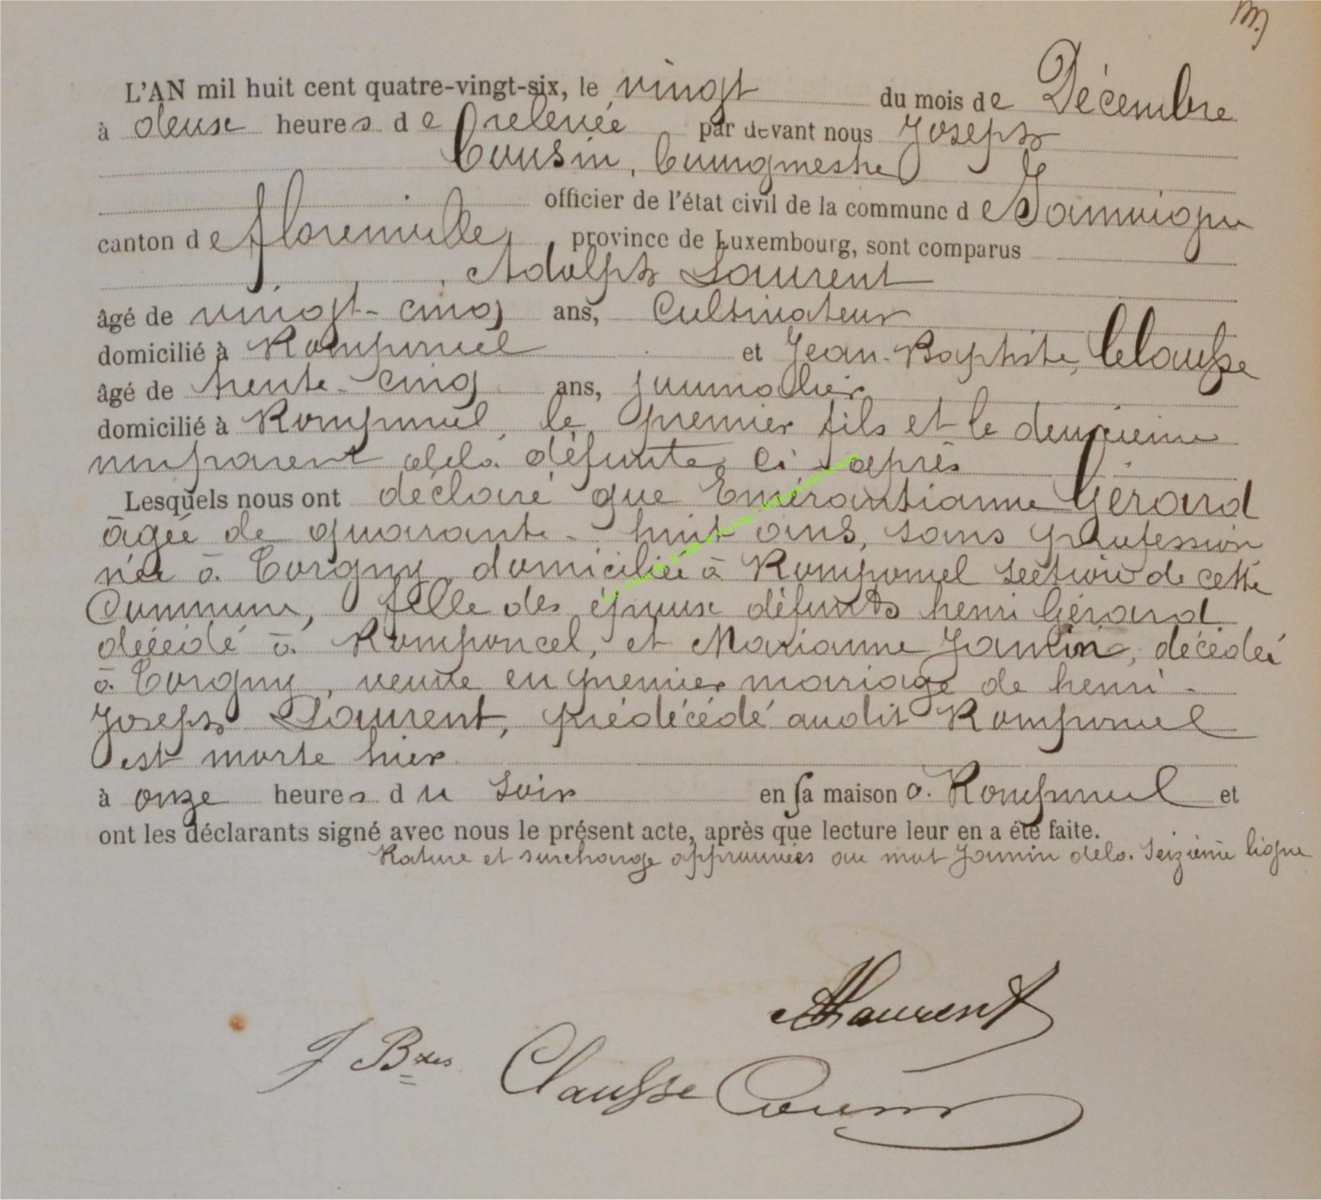 L'AN mil huit cent quatre-vingt-six, le vingt du mois de Décembre
à deuxe heures de relevée par devant nous Joseph
Cousin, bourgmestre
officier de l'état civil de la commune de Jamoigne
canton de florenville, province de Luxembourg, sont comparus
Adolph Laurent
âgé de vingt-cinq ans, Cultivateur
domicilié à Romponcel et Jean-Baptiste, Clausse
âgé de trente-cinq ans, journalier
domicilié à Romponcel, le premier fils et le deuxieme
non parent de la défunte, ci après
Lesquels nous ont déclaré que Emérantianne Gérard
âgée de quarante-huit ans, sans profession
née à Torgny, domiciliée à Romponcel section de cette
Commune, fille des époux défunts henri Gérard
décédé à Romponcel, et Marianne Janin, décédée
à Torgny, veuve en premier mariage de henri-
Joseph Laurent, prédécédé audit Romponcel
est morte hier
à onze heures du soir en sa maison à Romponcel et
ont les déclarants signé avec nous le présent acte, après que lecture leur en a été faite.
Rature et surcharge approuvées au mot Jannin de la seizième ligne
ALaurent
J Btes Clausse Cousin